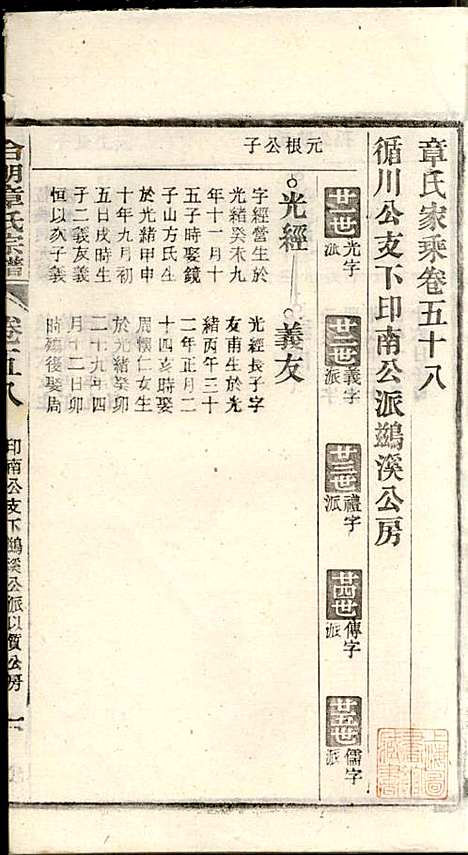 章氏家乘卷五十八
循川公支下印南公派鷀溪公房
廿一世光字派
廿二世義字派
廿三世禮字派
廿四世傳字派
廿五世儒字派
元根公子
光經
義友
字經營生於
光緒癸未九
年十一月十
五子時娶鏡
子山方氏生
於光緒甲申
十年九月初
五日戌時生
子二義友義
恒以亥子義
光經長子字
友甫生於光
緒丙午三十
二年正月二
十四亥時娶
周懷仁女生
於光緒癸卯
二十九年四
月十二日卯
時殤後娶局
章氏宗譜
卷五十八
印南公支下鷀溪公派以質公房
一
上海圖書館藏書